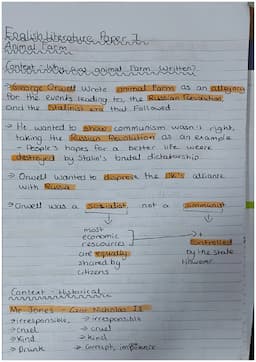 English Literature Paper 1
Animal Farm
Context - Why was animal Farm Written?
→ George Orwell Wrote animal Farm as an allegory
for the events leading to, the Russian Revolution
and the Stalinist era that followed
→ He wanted to show communism wasn't right,
taking the Russian Revolution as an example
- People's hopes for a better life were
destroyed by Stalin's brutal dictatorship.
→ Orwell wanted to disprove the UK's alliance
with Russia
→ Orwell was a socialist, not a communist
most
economic
resources
are equally
shared by
citizens
controlled
by the state
Context - Historical
Mr Jones - Czar Nicholas II
→ irresponsible → irresponsible
→ cruel → cruel
→ Kind → kind
→ Drunk → Corrupt,